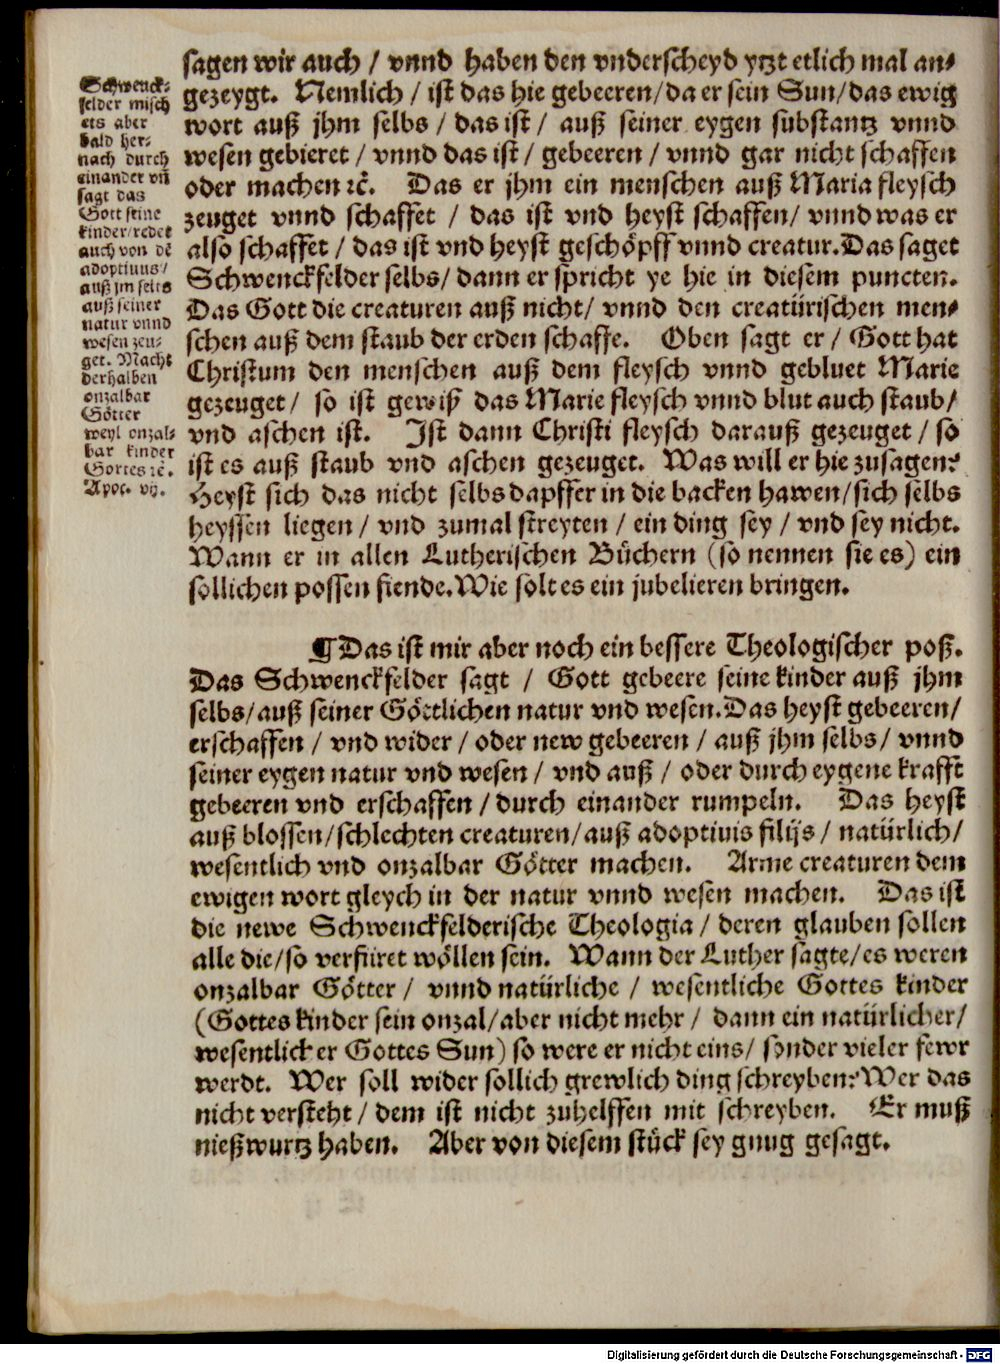 sagen wir auch / vnnd haben den vnderscheyd yrzt etlich mal an-
gezeygt. Nemlich / ist das hie gebeeren/da er sein Sun/das ewig
wort auß jhm selbs / das ist / auß seiner eygen substantz vnnd
wesen gebieret / vnnd das ist / gebeeren / vnnd gar nicht schaffen
oder machen ꝛc̄. Das er jhm ein menschen auß Maria fleysch
zeuget vnnd schaffet / das ist vnd heyst schaffen/ vnnd was er
also schaffet / das ist vnd heyst geschöpff vnnd creatur. Das saget
Schwenckfelder selbs/ dann er spricht ye hie in diesem puncten.
Das Gott die creaturen auß nicht/ vnnd den creatürischen men-
schen auß dem staub der erden schaffe. Oben sagt er / Gott hat
Christum den menschen auß dem fleysch vnnd gebluet Marie
gezeuget/ so ist gewiß das Marie fleysch vnnd blut auch staub/
vnd aschen ist. Ist dann Christi fleysch darauß gezeuget / so
ist es auß staub vnd aschen gezeuget. Was will er hie zusagen?
Heyst sich das nicht selbs dapffer in die backen hawen/sich selbs
heyssen liegen / vnd zumal streyten / ein ding sey / vnd sey nicht.
Wann er in allen Lutherischen Büchern (so nennen sie es) ein
sollichen possen fiende. Wie solt es ein jubelieren bringen.
Schwenck-
felder misch
ets aber
bald her-
nach durch
einander vn̄
sagt das
Gott seine
kinder/redet
auch von dē
adoptiuus/
auß jm selbs
auß seiner
natur vnnd
wesen zeu-
get. Macht
derhalben
onzalbar
Götter
weyl onzal-
bar kinder
Gottes ꝛc̄.
Apoc. vij.
¶ Das ist mir aber noch ein bessere Theologischer poß.
Das Schwenckfelder sagt / Gott gebeere seine kinder auß jhm
selbs/auß seiner Göttlichen natur vnd wesen. Das heyst gebeeren/
erschaffen / vnd wider / oder new gebeeren / auß jhm selbs/ vnnd
seiner eygen natur vnd wesen / vnd auß / oder durch eygene krafft
gebeeren vnd erschaffen / durch einander rumpeln. Das heyst
auß blossen/schlechten creaturen/auß adoptiuis filijs / natürlich/
wesentlich vnd onzalbar Götter machen. Arme creaturen dem
ewigen wort gleych in der natur vnnd wesen machen. Das ist
die newe Schwenckfelderische Theologia / deren glauben sollen
alle die/so verfüret wöllen sein. Wann der Luther sagte/es weren
onzalbar Götter / vnnd natürliche / wesentliche Gottes kinder
(Gottes kinder sein onzal/aber nicht mehr / dann ein natürlicher/
wesentlicher Gottes Sun) so were er nicht eins/ sonder vieler fewr
werdt. Wer soll wider sollich grewlich ding schreyben? Wer das
nicht versteht / dem ist nicht zuhelffen mit schreyben. Er muß
nießwurtz haben. Aber von diesem stück sey gnug gesagt.
Digitalisierung gefördert durch die Deutsche Forschungsgemeinschaft - DFG